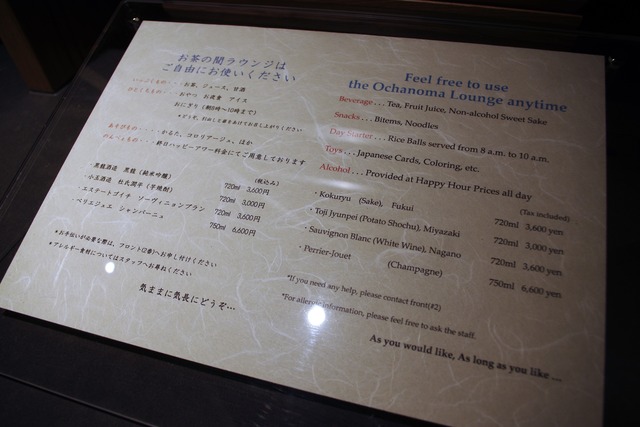 お茶の間ラウンジは
ご自由にお使いください
お茶、ジュース、甘酒
おやつ お夜食 アイス
おにぎり (朝8時〜10時まで)
あそびもの・・・・かるた、コロリアージュ、ほか
のんべえもの・・・・終日ハッピーアワー料金にてご用意しております
(税込み)
・黒龍酒造 黒龍 (純米吟醸) 720ml 3,600円
・小玉酒造 杜氏潤平 (芋焼酎) 720ml 3,000円
・エステートゴイチ ソーヴィニョンブラン 720ml 3,600円
・ペリエジュエ シャンパーニュ 750ml 6,600円
*お手伝いが必要な際は、フロント(2番)へお申し付けください
*アレルギー食材についてはスタッフへお尋ねください
気ままに気長にどうぞ…
Feel free to use
the Ochanoma Lounge anytime
Beverage . . . Tea, Fruit Juice, Non-alcohol Sweet Sake
Snacks . . . Bitems, Noodles
Day Starter . . . Rice Balls served from 8 a.m. to 10 a.m.
Toys . . . Japanese Cards, Coloring, etc.
Alcohol . . . Provided at Happy Hour Prices all day
(Tax included)
・Kokuryu (Sake), Fukui 720ml 3,600 yen
・Toji Jyunpei (Potato Shochu), Miyazaki 720ml 3,000 yen
・Sauvignon Blanc (White Wine), Nagano 720ml 3,600 yen
・Perrier-Jouet (Champagne) 750ml 6,600 yen
*If you need any help, please contact front(#2)
*For allergy information, please feel free to ask the staff.
As you would like, As long as you like ....